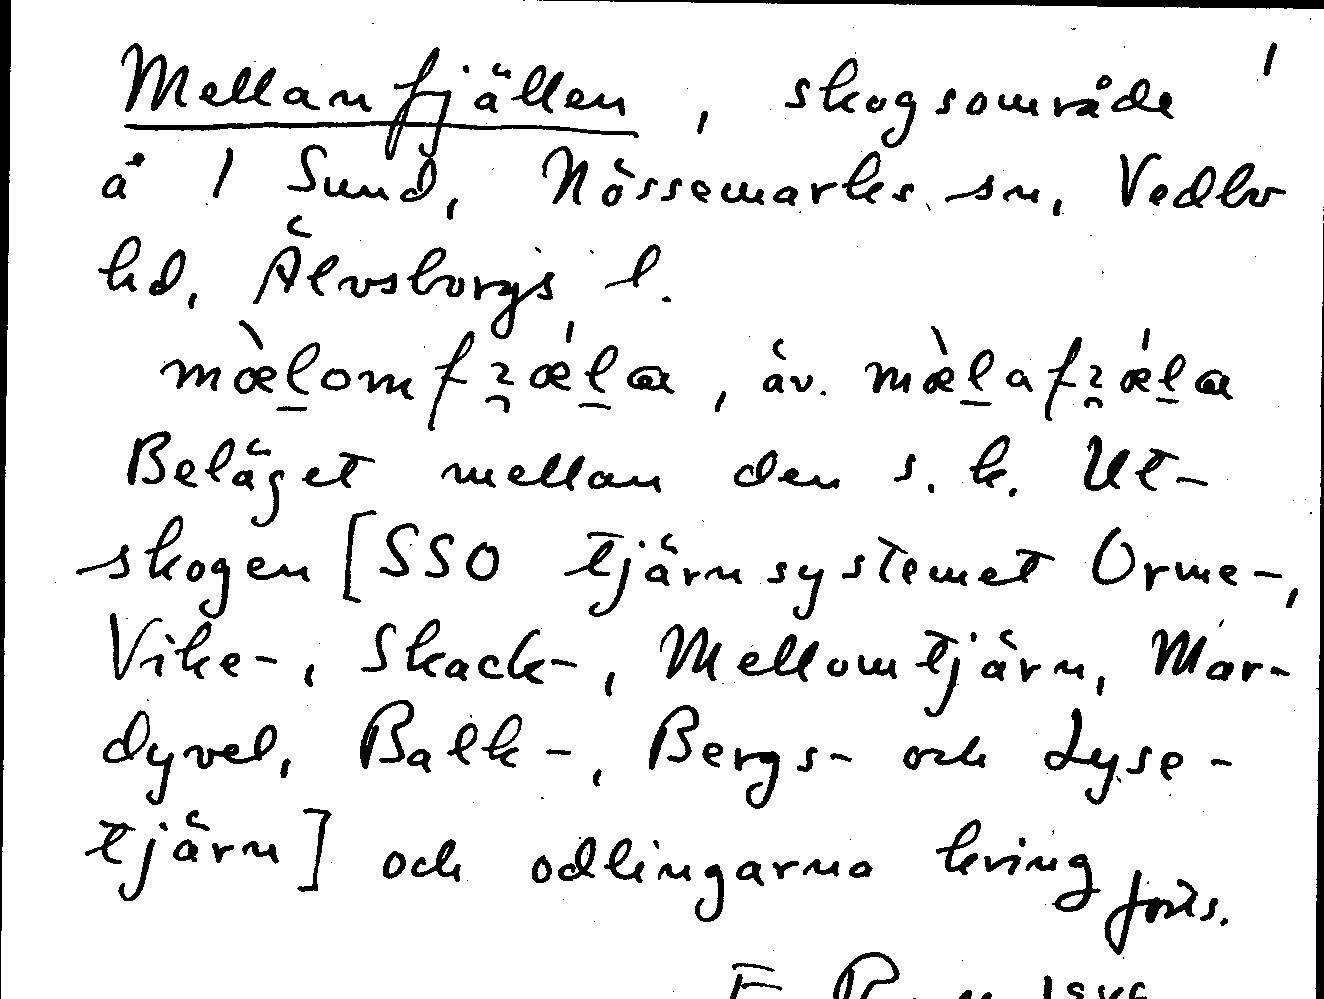 Mellanfjällen, skogsområde 1
å 1 Sund, Nössemarks sn, Vedbo
hd, Älvsborgs l.
mæ̀l̠omfꝛǽl̠a, äv. mæ̀l̠afꝛǽl̠a
Beläget mellan den s. k. Ut-
skogen [SSO tjärnsystemet Orme-,
Vike-, Skack-, Mellomtjärn, Mar-
dyvel, Balk-, Bergs- och Lyse-
tjärn] och odlingarna kring
forts.